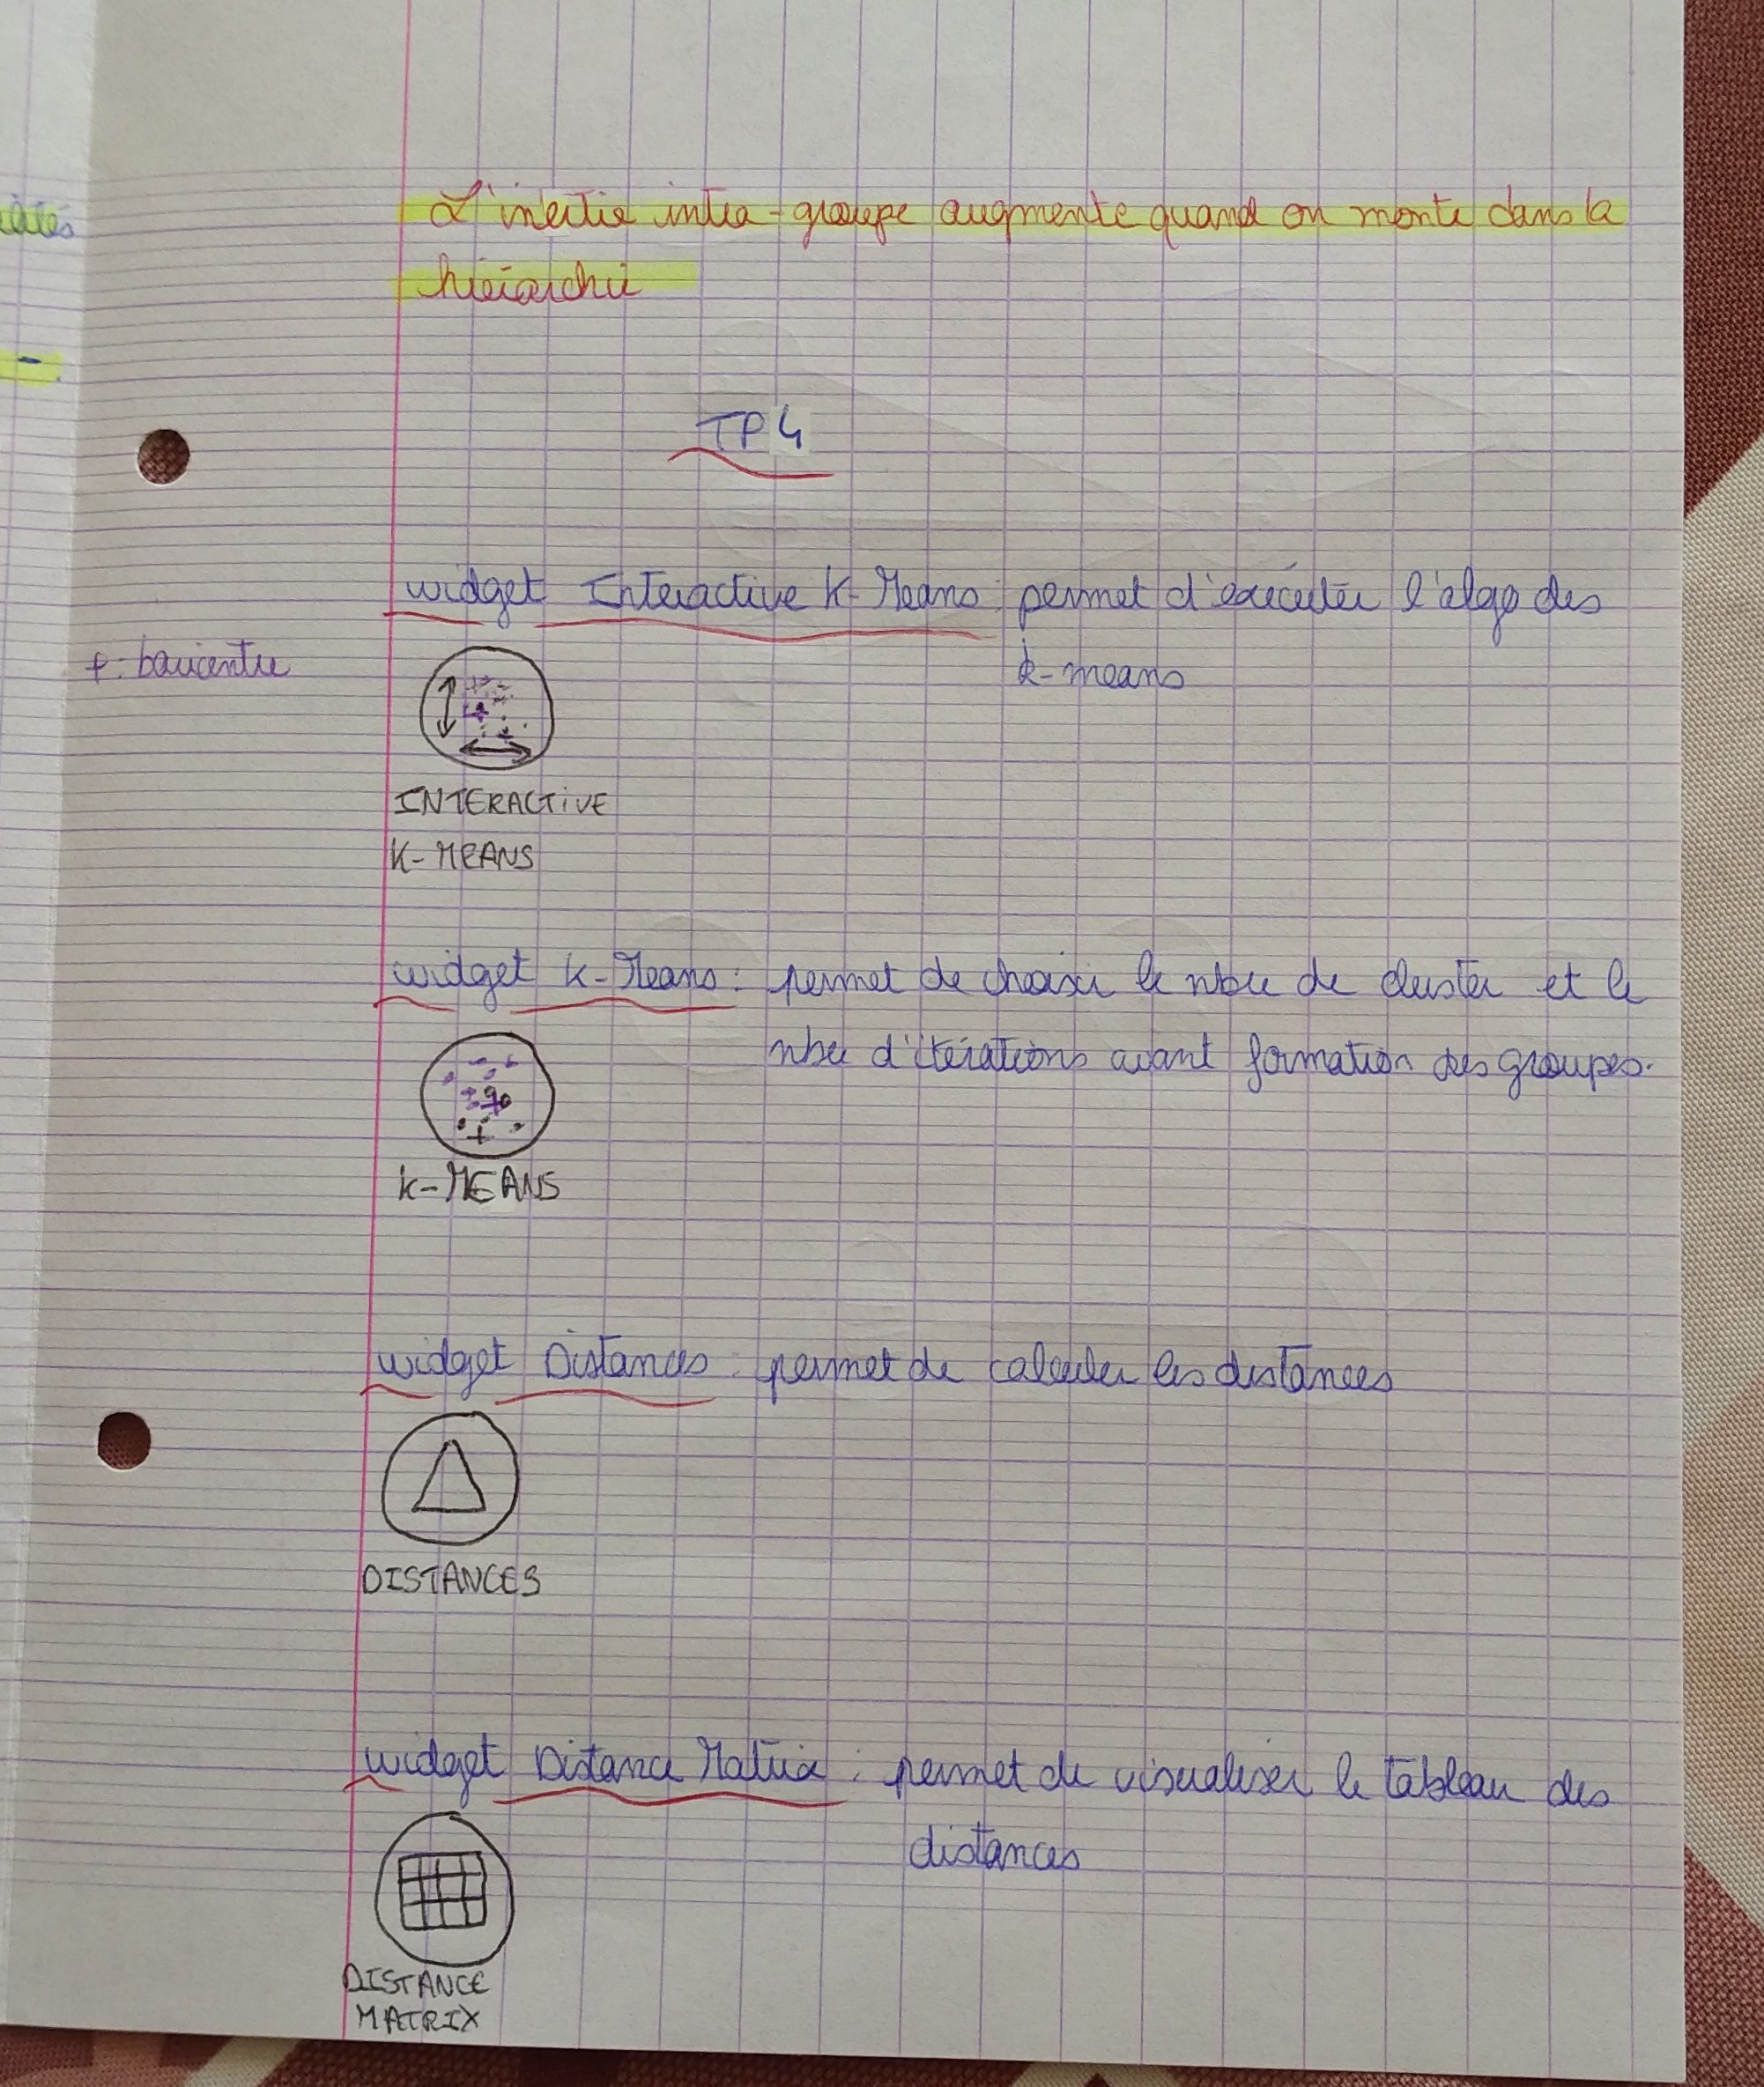 L'inertie intra-groupe augmente quand on monte dans la
hiérarchie
TP4
widget Interactive K-Means : permet d'exécuter l'algo des
k-means
+ : baricentre
INTERACTIVE
K-MEANS
widget K-Means : permet de choisir le nbre de cluster et le
nbre d'itérations avant formation des groupes.
K-MEANS
widget Distances : permet de calculer les distances
DISTANCES
widget Distance Matrix : permet de visualiser le tableau des
distances
DISTANCE
MATRIX